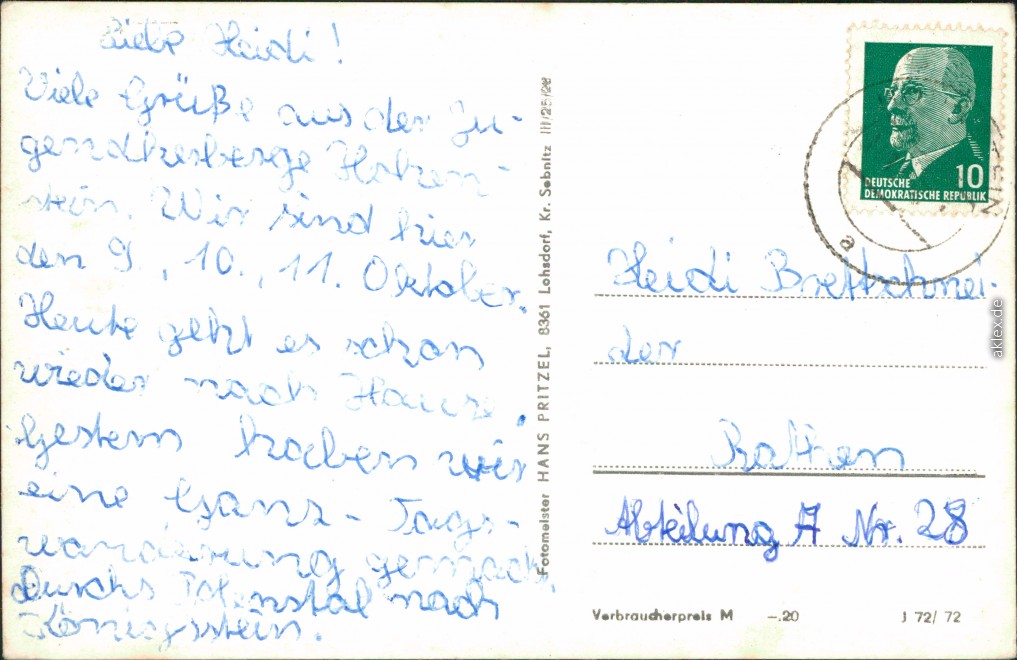 Liebe Heidi!
Viele Grüße aus der Ju-
gendherberge Hohen-
stein. Wir sind hier
den 9., 10., 11. Oktober.
Heute geht es schon
wieder nach Hause.
Gestern haben wir
eine Ganz-Tags-
wanderung gemacht
Durchs nach
Königsstein.
Fotomeister HANS PRITZEL, 8361 Lohsdorf, Kr. Sebnitz III/25/28
DEUTSCHE
DEMOKRATISCHE REPUBLIK
10
a
Heidi Brettschnei-
der
Rathen
Abteilung A Nr. 28
Verbraucherpreis M -.20 J 72/72
aklex.de